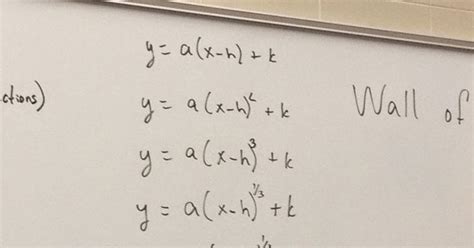 y = a(x-h) + k
ctions)
y = a(x-h)² + k
Wall of
y = a(x-h)³ + k
y = a(x-h)^1/3 + k